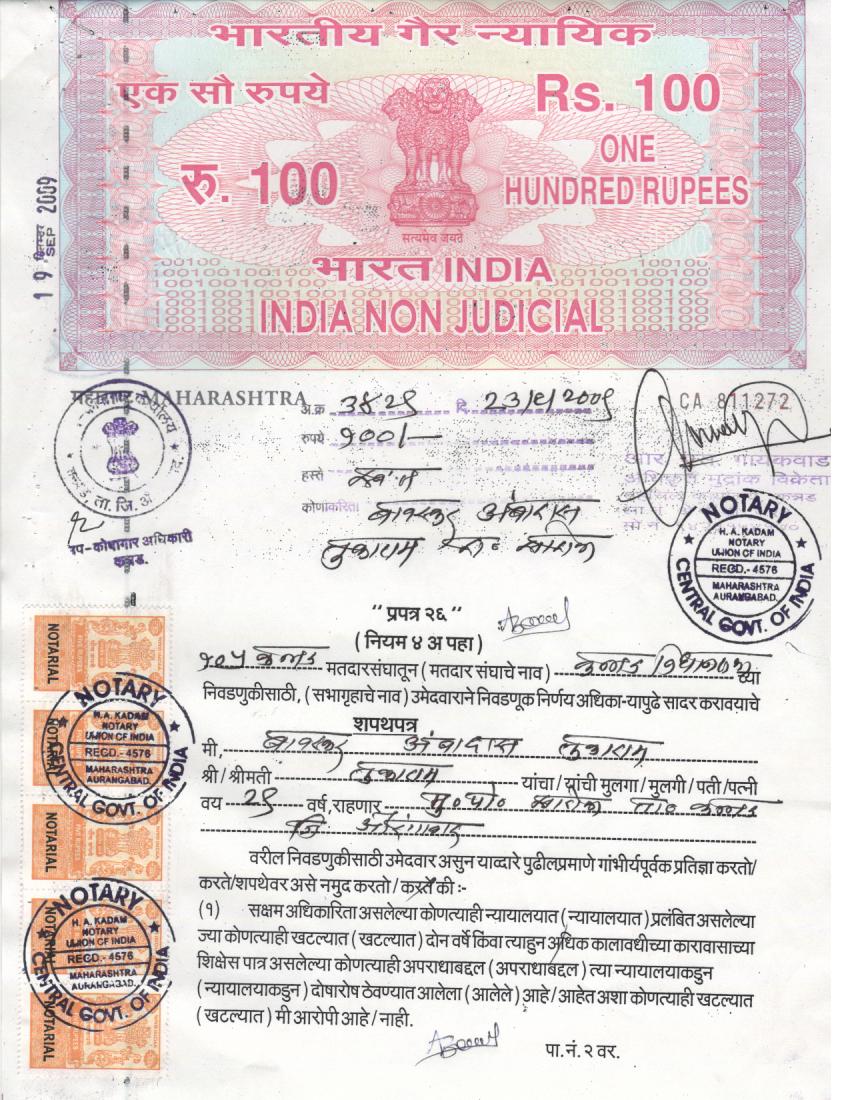 भारतीय गैर न्यायिक
एक सौ रुपये
Rs. 100
रु. 100
ONE
HUNDRED RUPEES
सत्यमेव जयते
भारत INDIA
INDIA NON JUDICIAL
19 SEP 2009
महाराष्ट्र MAHARASHTRA
CA 811272
अ.क्र
रुपये १००/-
हस्ते
कोणाकरिता
उप-कोषागार अधिकारी
कन्नड.
NOTARY
H. A. KADAM
NOTARY
UNION OF INDIA
REGD.- 4576
MAHARASHTRA
AURANGABAD.
CENTRAL GOVT. OF INDIA
" प्रपत्र २६ "
( नियम ४ अ पहा )
१०५ कन्नड मतदारसंघातून ( मतदार संघाचे नाव ) कन्नड विधानसभा च्या
निवडणुकीसाठी, ( सभागृहाचे नाव ) उमेदवाराने निवडणूक निर्णय अधिका-यापुढे सादर करावयाचे
शपथपत्र
मी, अंबादास तुकाराम
श्री / श्रीमती तुकाराम यांचा / यांची मुलगा / मुलगी / पती / पत्नी
वय 29 वर्ष, राहणार मु. पो. ता. कन्नड
जि औरंगाबाद
वरील निवडणुकीसाठी उमेदवार असुन याव्दारे पुढीलप्रमाणे गांभीर्यपूर्वक प्रतिज्ञा करतो/
करते/शपथेवर असे नमुद करतो / करते की :-
(१) सक्षम अधिकारिता असलेल्या कोणत्याही न्यायालयात ( न्यायालयात ) प्रलंबित असलेल्या
ज्या कोणत्याही खटल्यात ( खटल्यात ) दोन वर्षे किंवा त्याहुन अधिक कालावधीच्या कारावासाच्या
शिक्षेस पात्र असलेल्या कोणत्याही अपराधाबद्दल ( अपराधाबद्दल ) त्या न्यायालयाकडुन
( न्यायालयाकडुन ) दोषारोष ठेवण्यात आलेला ( आलेले ) आहे / आहेत अशा कोणत्याही खटल्यात
( खटल्यात ) मी आरोपी आहे / नाही.
पा.नं. २ वर.
NOTARIAL
NOTARY
H. A. KADAM
NOTARY
UNION OF INDIA
REGD.- 4576
MAHARASHTRA
AURANGABAD.
CENTRAL GOVT. OF INDIA
NOTARIAL
NOTARY
H. A. KADAM
NOTARY
UNION OF INDIA
REGD.- 4576
MAHARASHTRA
AURANGABAD.
CENTRAL GOVT. OF INDIA
NOTARIAL